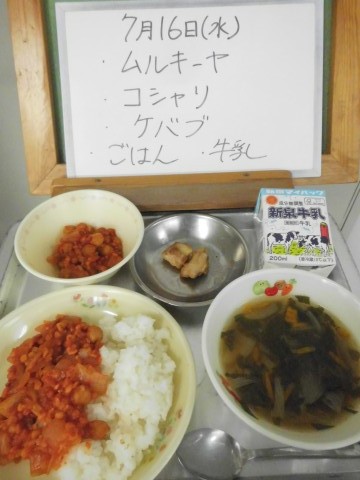 7月16日(水)
・ムルキーヤ
・コシャリ
・ケバブ
・ごはん ・牛乳
新泉牛乳
200ml